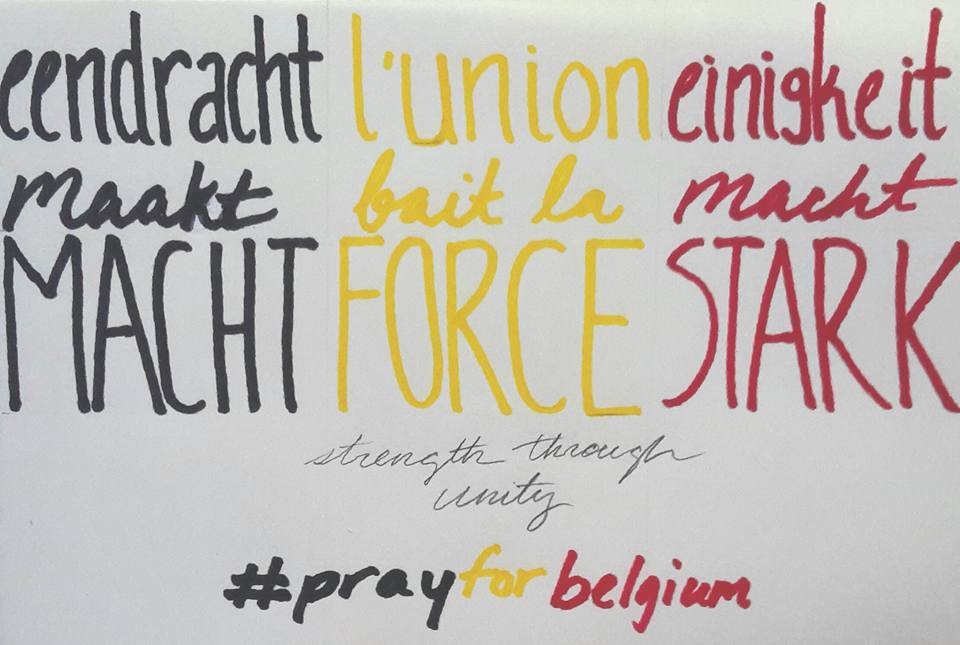 eendracht
maakt
MACHT
l'union
bait la
FORCE
einigkeit
macht
STARK
strength through
unity
#prayforbelgium